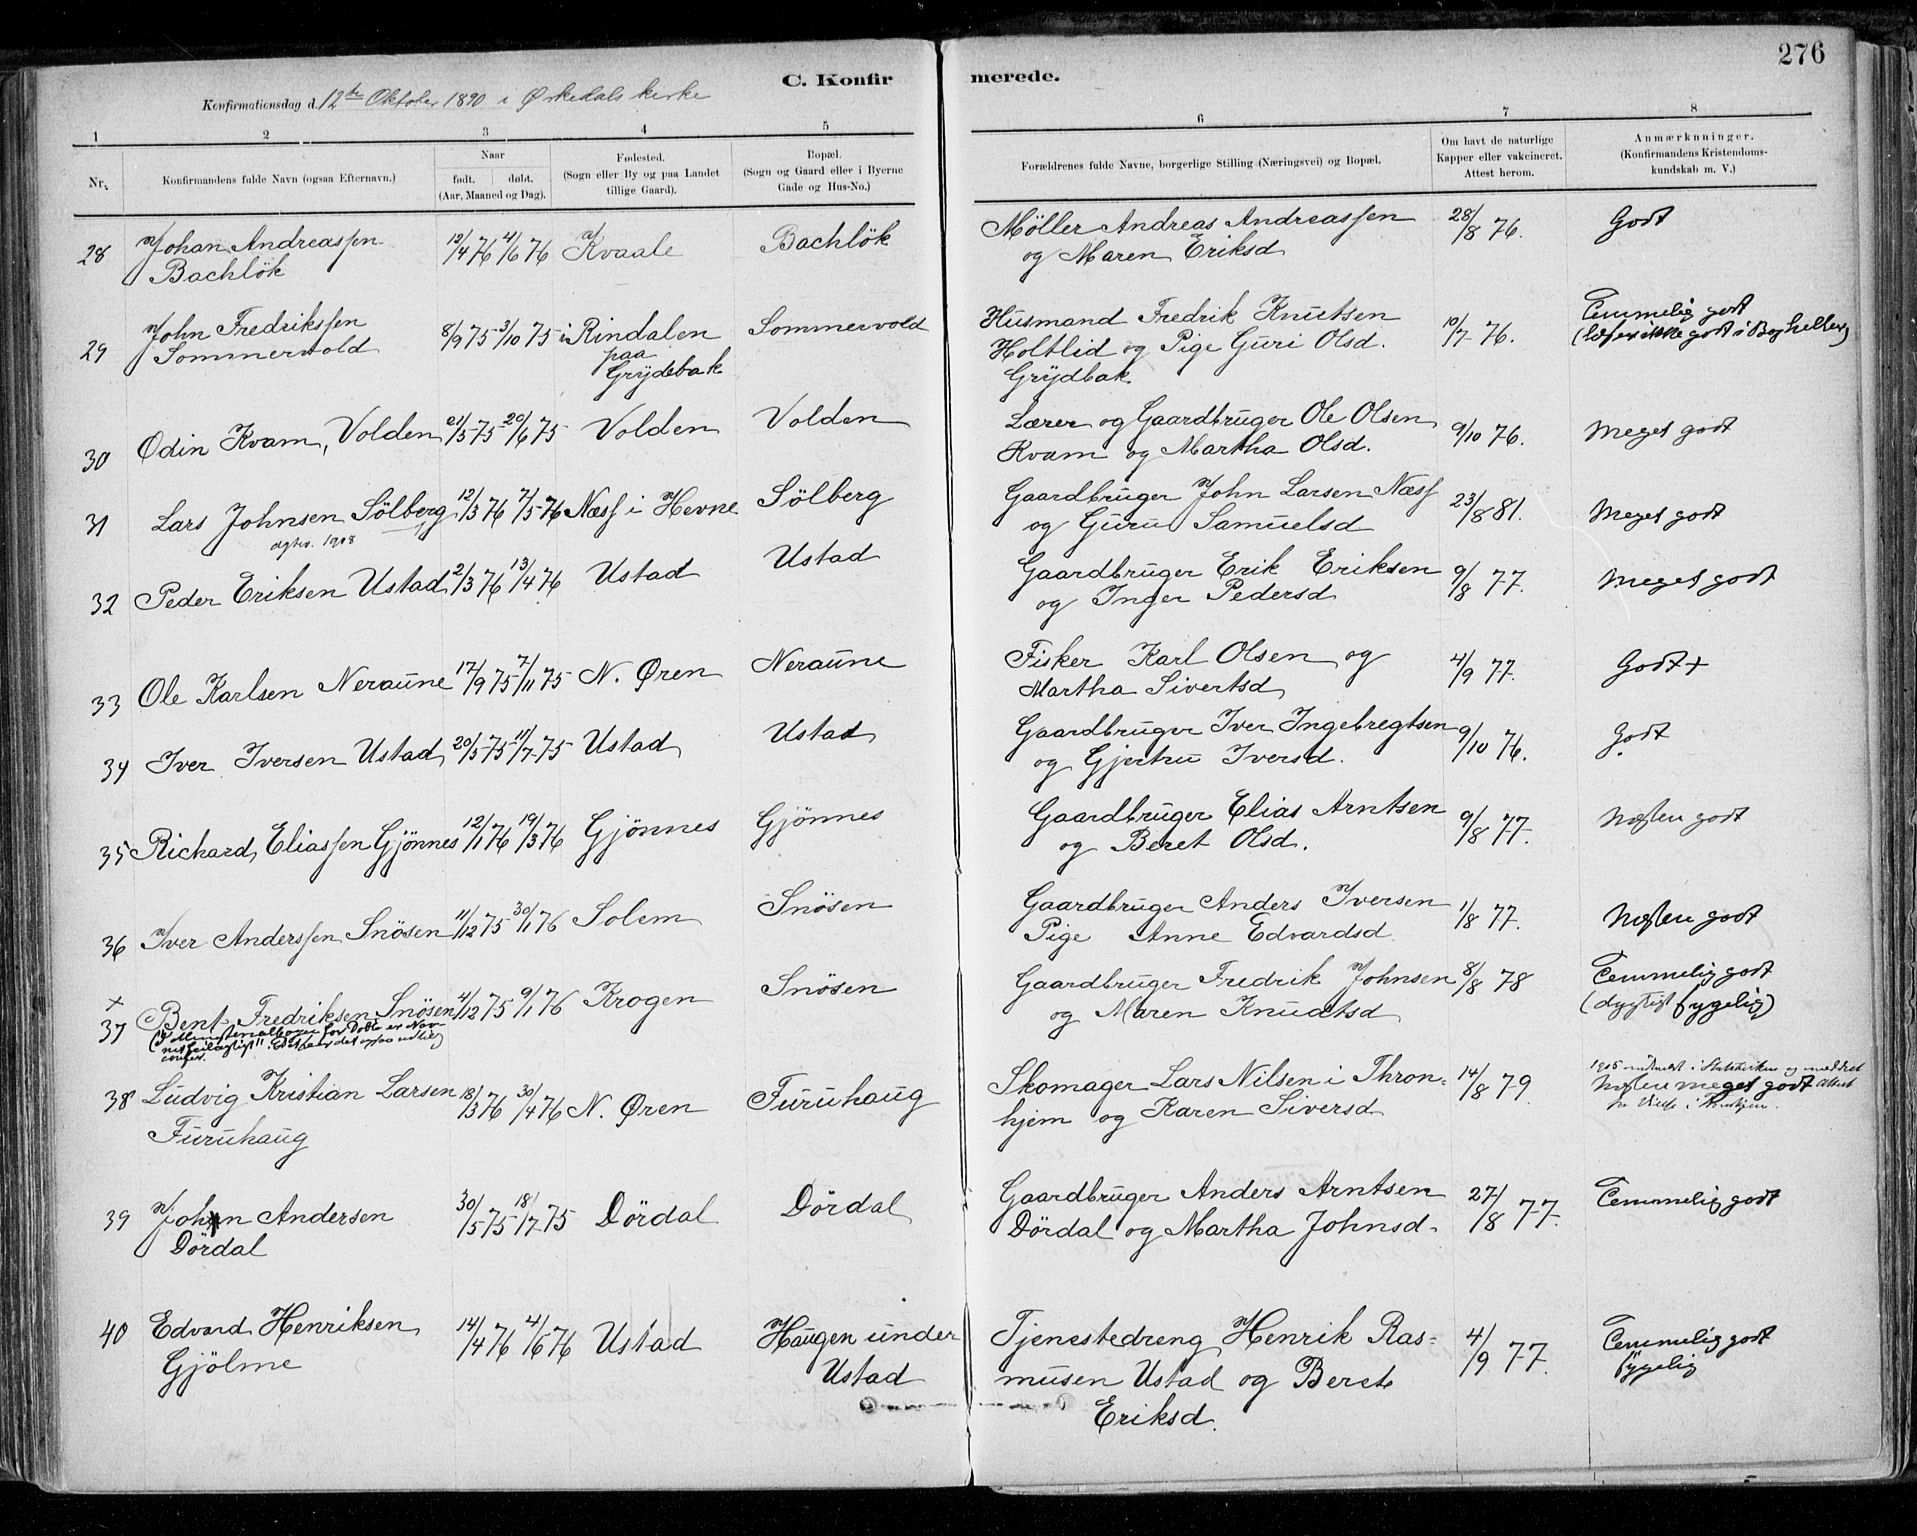 276
C. Konfirmerede.
Konfirmationsdag d. 12te Oktober 1890 i Ørkedals kirke
1 2 3 4 5 6 7 8
Nr. Konfirmandens fulde Navn (ogsaa Efternavn.) Naar født. døbt. (Aar, Maaned og Dag). Fødested. (Sogn eller By og paa Landet tillige Gaard). Bopæl. (Sogn og Gaard eller i Byerne Gade og Hus-No.) Forældrenes fulde Navne, borgerlige Stilling (Næringsvei) og Bopæl. Om havt de naturlige Kapper eller vakcineret. Attest herom. Anmærknninger. (Konfirmandens Kristendoms-kundskab m. V.)
28 Johan Andreassen 12/4 76 4/6 76 Kvaale Bachlök Möller Andreas Andreassen 28/8 76. Godt
Bachlök og Maren Eriksd
29 John Fredrikssen 8/9 75 3/10 75 i Rindalen Sommervold Husmand Fredrik Knutsen 10/7 76. Temmelig godt
Sommervold paa Holtlid og Pige Guri Olsd. (læser ikke godt i Bog heller)
Grydebak Grydbak
30 Odin Kvam, Volden 21/5 75 20/6 75 Volden Volden Lærer og Gaardbruger Ole Olsen 9/10 76. Meget godt
Kvam og Martha Olsd.
31 Lars Johnsen Sölberg 12/3 76 7/5 76 Næss i Hevne Sölberg Gaardbruger John Larsen Næss 23/8 81. Meget godt
1908 og Guru Samuelsd
32 Peder Eriksen Ustad 2/3 76 13/4 76 Ustad Ustad Gaardbruger Erik Eriksen 9/8 77. Meget godt
og Inger Pedersd
33 Ole Karlsen Neraune 17/9 75 7/11 75 N. Øren Neraune Fisker Karl Olsen og 4/9 77. Godt+
Martha Sivertsd
34 Iver Iversen Ustad 20/5 75 11/7 75 Ustad Ustad Gaardbruger Iver Ingebregtsen 9/10 76. Godt
og Gjertru Iversd.
35 Richard Eliassen Gjönnes 12/1 76 19/3 76 Gjönnes Gjönnes Gaardbruger Elias Arntsen 9/8 77. Næsten godt
og Beret Olsd.
36 Iver Anderssen Snösen 11/12 75 30/1 76 Solem Snösen Gaardbruger Anders Iversen 1/8 77. Næsten godt
Pige Anne Edvardsd
+
37 Bent Fredriksen Snösen 4/12 75 9/1 76 Krogen Snösen Gaardbruger Fredrik Johnsen 8/8 78 Temmelig godt
og Maren Knudtsd (dygtigt sygelig)
38 Ludvig Kristian Larsen 18/3 76 30/4 76 N. Øren Furuhaug Skomager Lars Nilsen i Thron- 14/8 79. Næsten meget godt
Furuhaug hjem og Karen Siversd
39 Johan Andersen 30/5 75 18/7 75 Dördal Dördal Gaardbruger Anders Arntsen 27/8 77. Temmelig godt
Dördal Dördal og Martha Johnsd.
40 Edvard Henriksen 14/4 76 4/6 76 Ustad Haugen under Tjenestedreng Henrik Ras- 4/9 77. Temmelig godt
Gjölme Ustad musen Ustad og Beret sygelig
Eriksd.